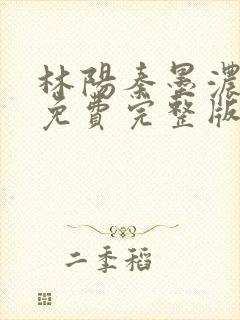 林陽秦墨濃
免費完整版
二季稻